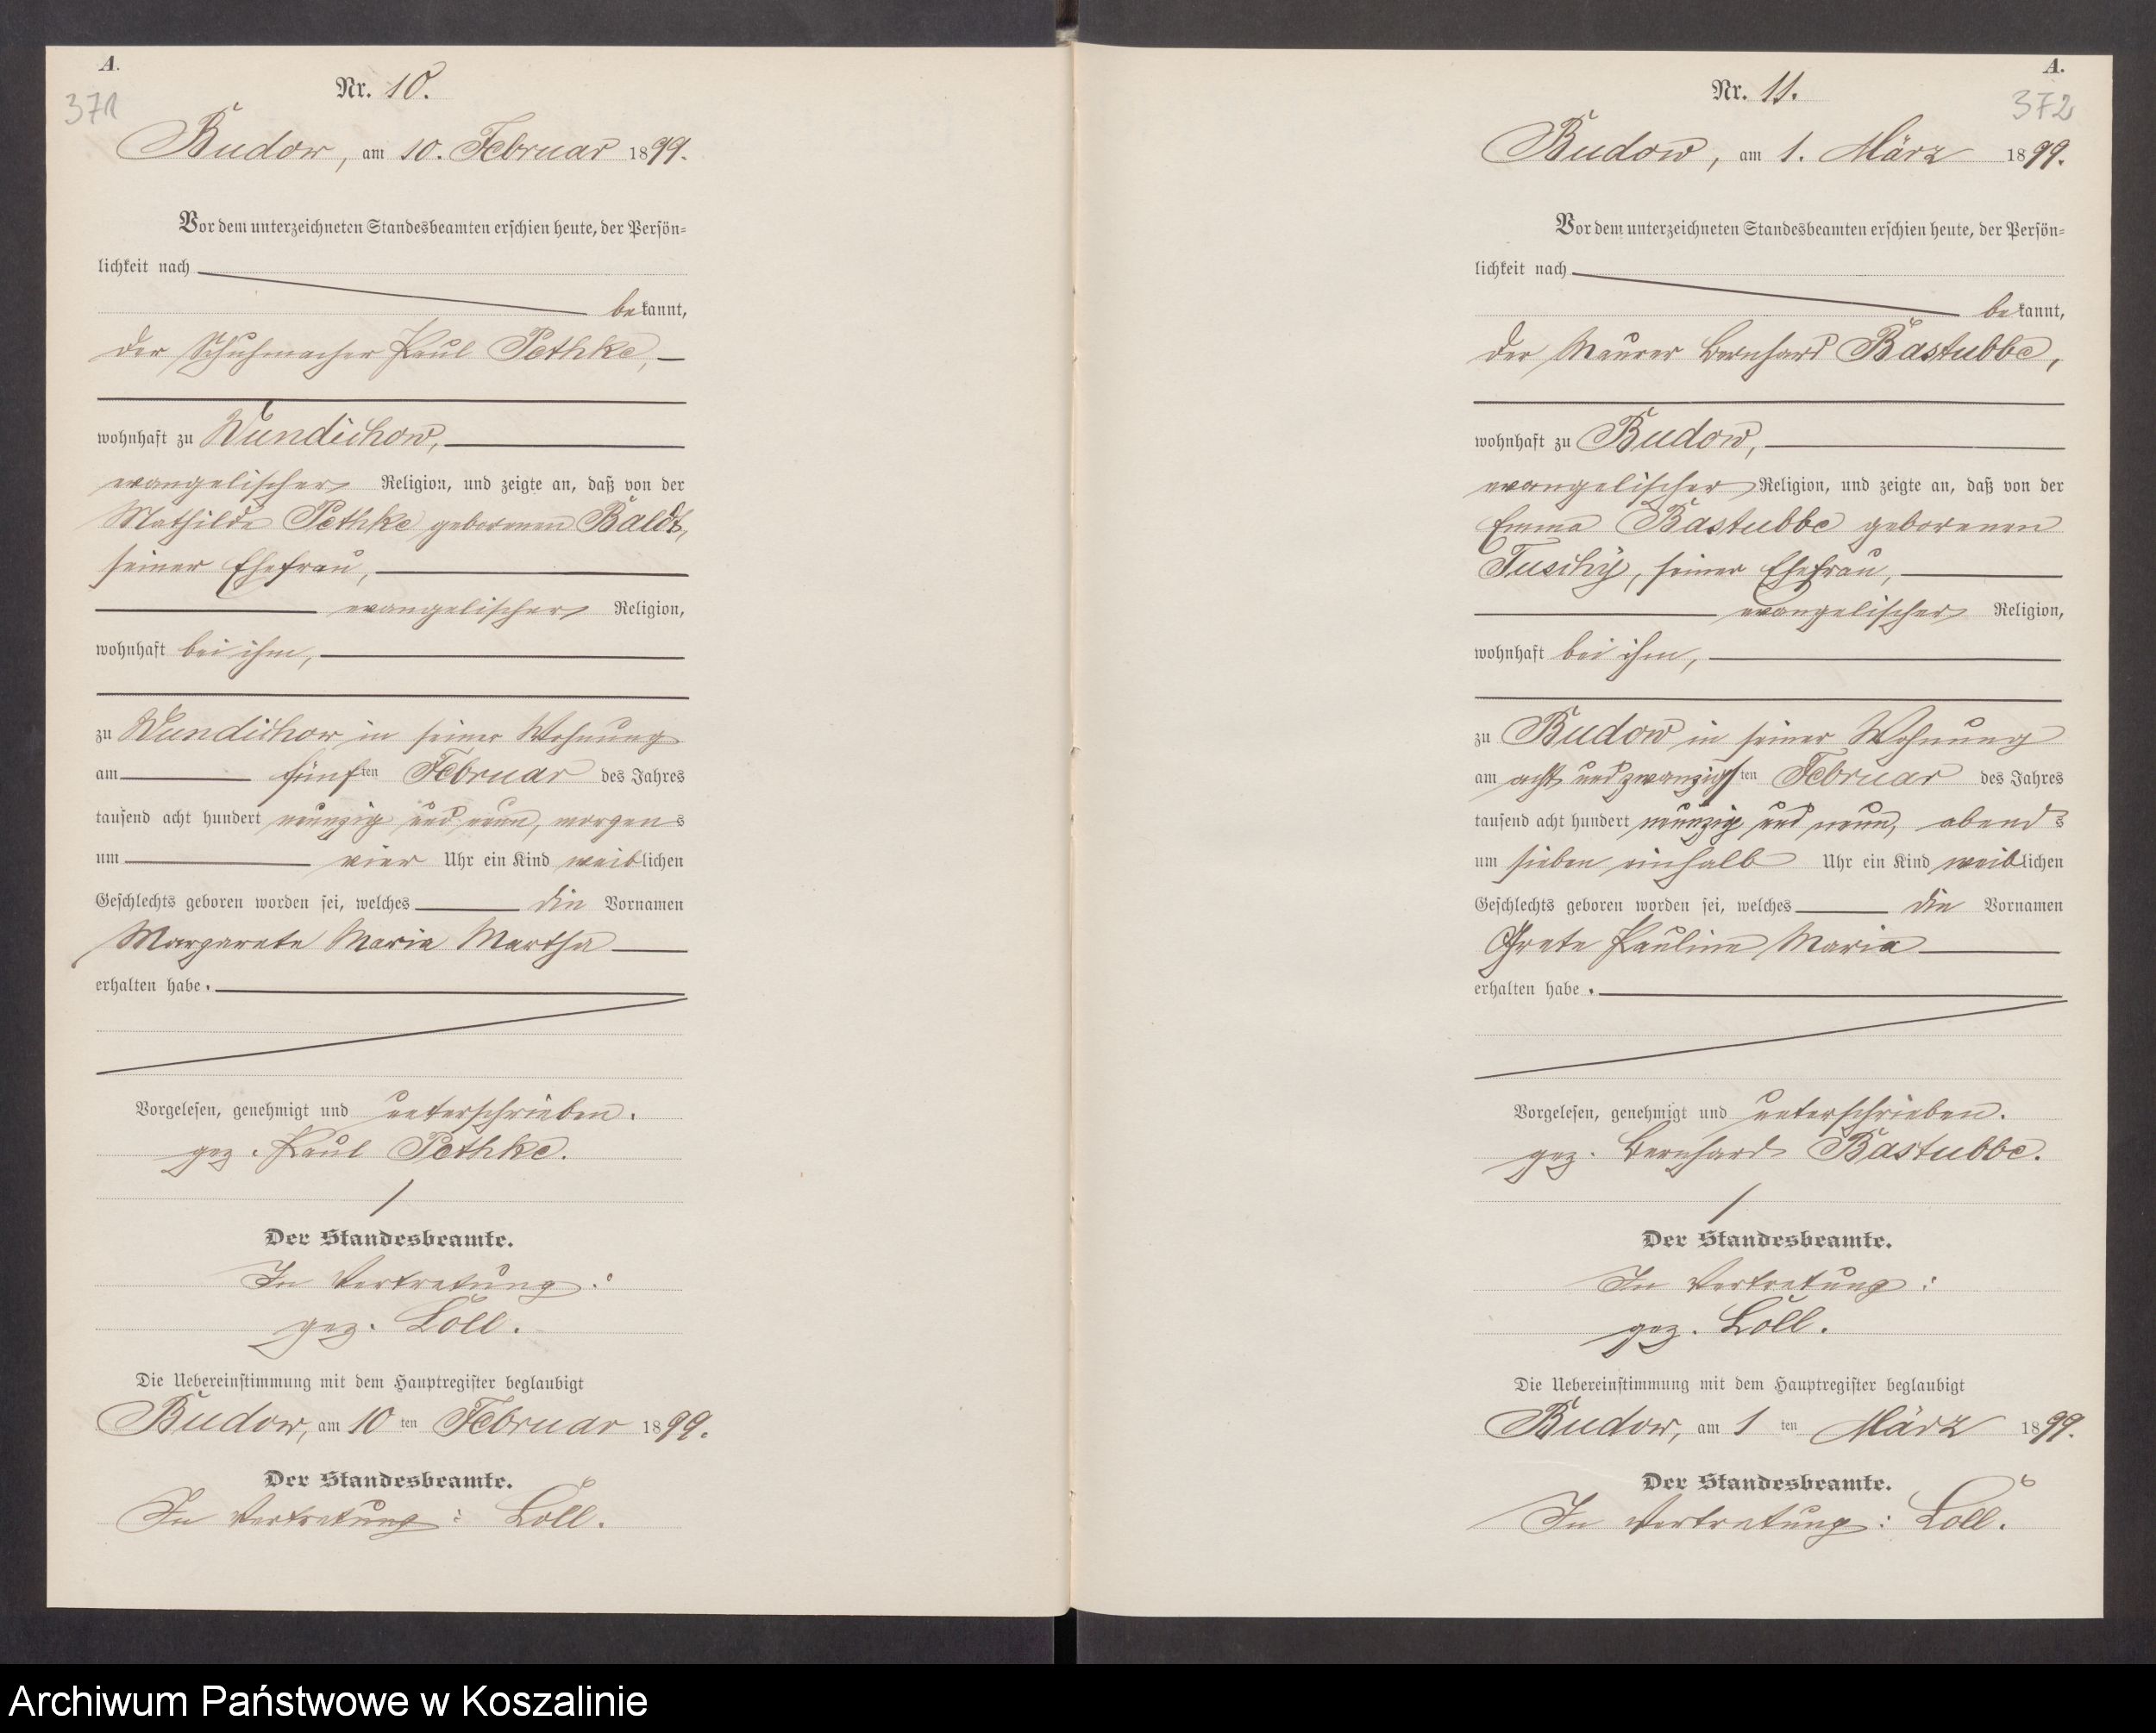 A.
371
Nr. 10.
Budow, am 10. Februar 1899.
Vor dem unterzeichneten Standesbeamten erschien heute, der Persön-
lichkeit nach
bekannt,
der Schuhmacher Paul Pethke,
wohnhaft zu Wundichow,
evangelischer Religion, und zeigte an, daß von der
Mathilde Pethke geborenen Baldt,
seiner Ehefrau,
evangelischer Religion,
wohnhaft bei ihm,
zu Wundichow in seiner Wohnung
am fünften Februar des Jahres
tausend acht hundert neunzig und neun, morgens
um vier Uhr ein Kind weiblichen
Geschlechts geboren worden sei, welches die Vornamen
Margarete Marie Martha
erhalten habe.
Vorgelesen, genehmigt und unterschrieben.
gez. Paul Pethke.
Der Standesbeamte.
In Vertretung:
gez. Loll.
Die Uebereinstimmung mit dem Hauptregister beglaubigt
Budow, am 10 ten Februar 1899.
Der Standesbeamte.
In Vertretung: Loll.
A.
372
Nr. 11.
Budow, am 1. März 1899.
Vor dem unterzeichneten Standesbeamten erschien heute, der Persön-
lichkeit nach
bekannt,
der Maurer Bernhard Bastubbe,
wohnhaft zu Budow,
evangelischer Religion, und zeigte an, daß von der
Emma Bastubbe geborenen
Tuschÿ, seiner Ehefrau,
evangelischer Religion,
wohnhaft bei ihm,
zu Budow in seiner Wohnung
am acht und zwanzigsten Februar des Jahres
tausend acht hundert neunzig und neun, abends
um sieben einhalb Uhr ein Kind weiblichen
Geschlechts geboren worden sei, welches die Vornamen
Grete Pauline Marie
erhalten habe.
Vorgelesen, genehmigt und unterschrieben.
gez. Bernhard Bastubbe.
Der Standesbeamte.
In Vertretung:
gez. Loll.
Die Uebereinstimmung mit dem Hauptregister beglaubigt
Budow, am 1 ten März 1899.
Der Standesbeamte.
In Vertretung: Loll.
Archiwum Państwowe w Koszalinie